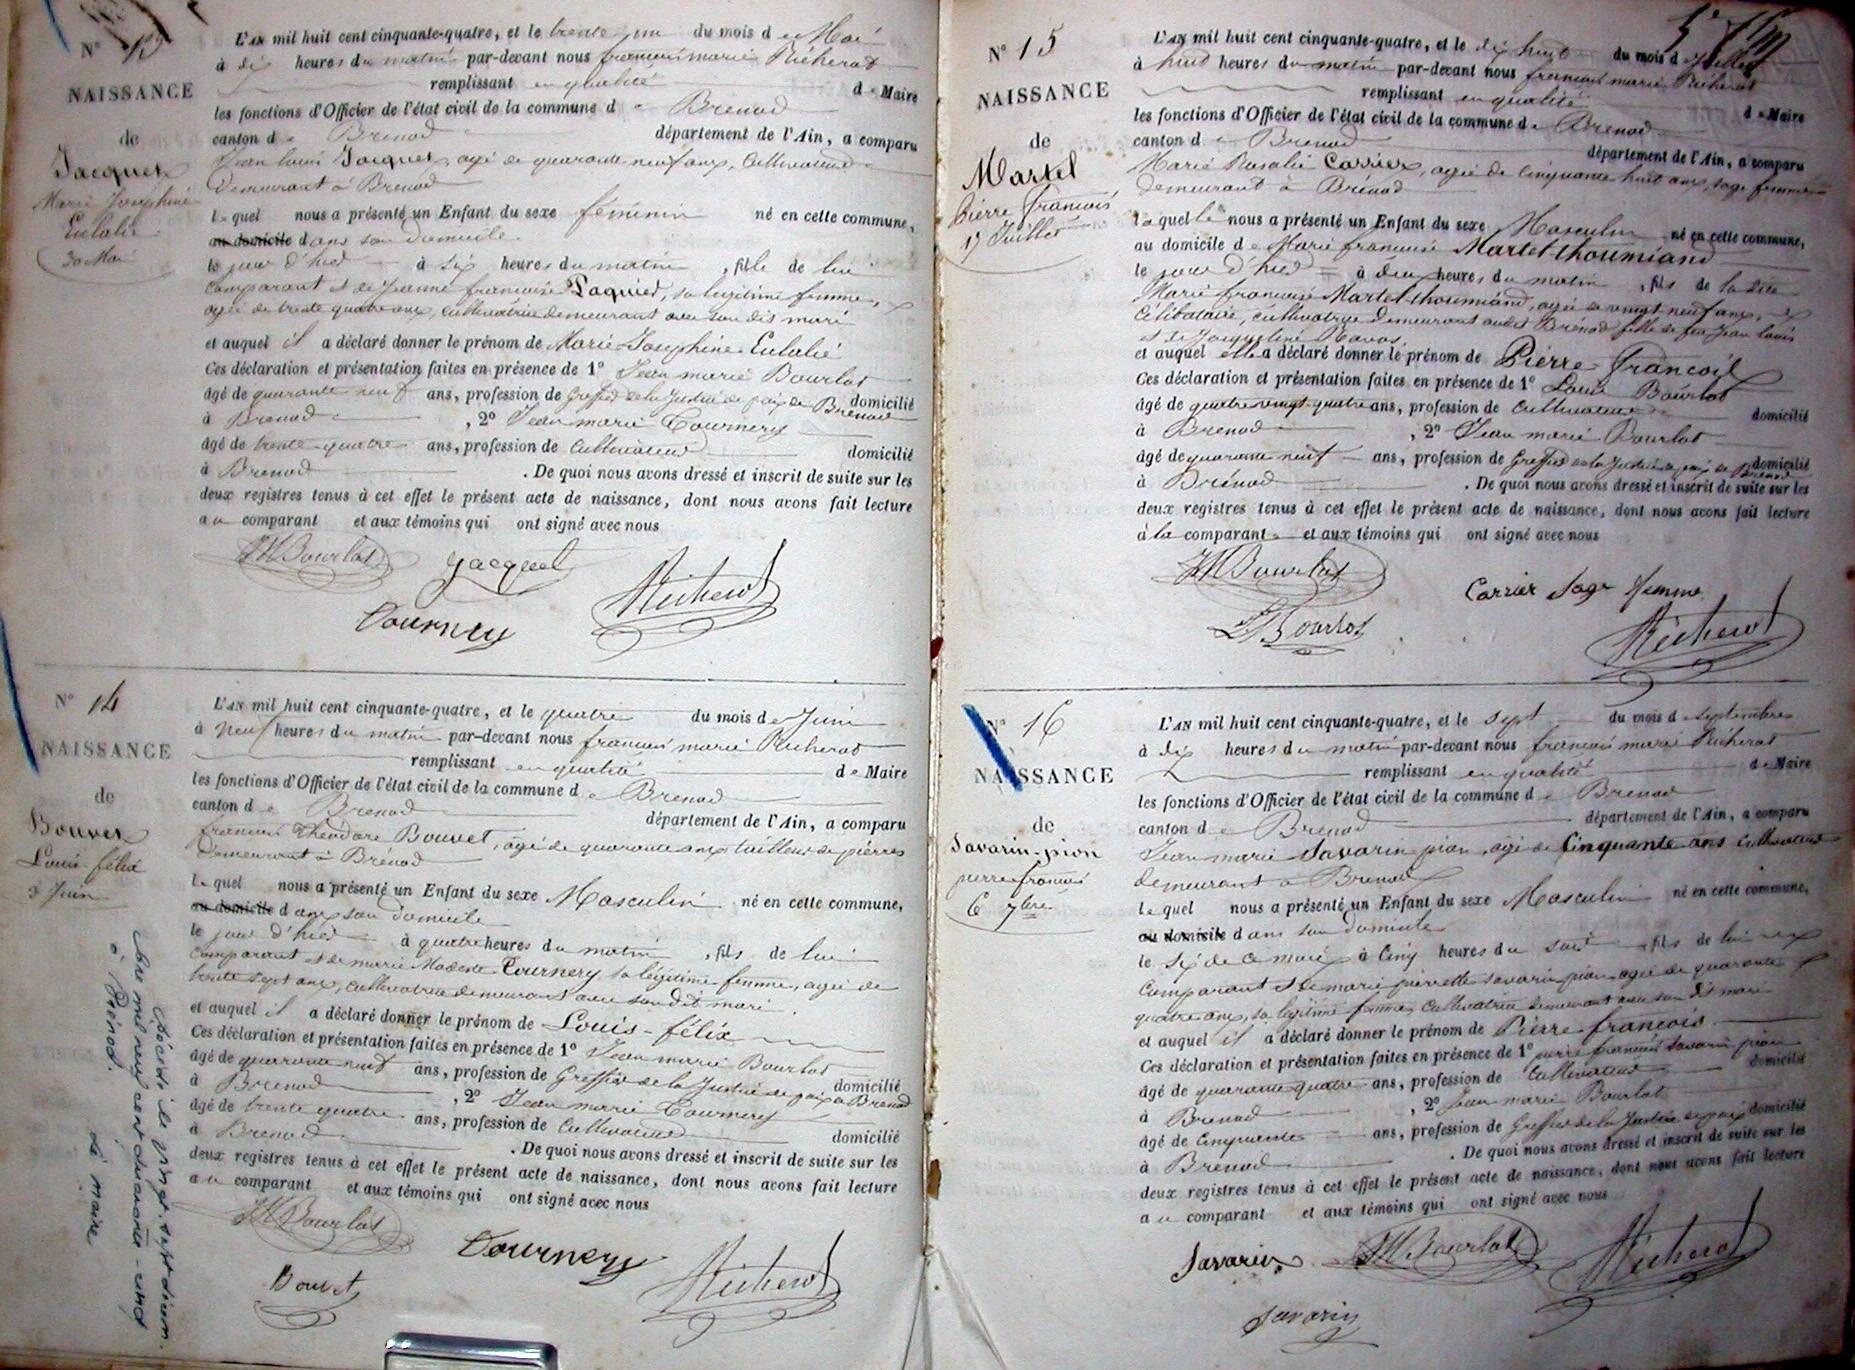 N° 13
NAISSANCE
de
Jacquet
Marie Joséphine
Eulalie
30 Mai
L'AN mil huit cent cinquante-quatre, et le trente un du mois de Mai
à dix heures du matin par-devant nous françois marie Richerot
remplissant en qualité de Maire
les fonctions d'Officier de l'état civil de la commune de Brenod
canton de Brenod département de l'Ain, a comparu
Jean louis Jacquet, agé de quarante neuf ans, Cultivateur
demeurant à Brénod
Lequel nous a présenté un Enfant du sexe féminin né en cette commune,
au domicile dans son domicile
le jour d'hier à six heures du matin, fille de lui
Comparant et de Jeanne françoise Paquier, sa légitime femme,
agée de trente quatre ans, cultivatrice demeurant avec son dit mari
et auquel il a déclaré donner le prénom de Marie-Joséphine Eulalie
Ces déclaration et présentation faites en présence de 1° Jean marie Bourlot
âgé de quarante neuf ans, profession de Greffier de la Justice de paix de Brénod domicilié
à Brenod, 2° Jean marie Tournery
âgé de trente-quatre ans, profession de cultivateur domicilié
à Brenod. De quoi nous avons dressé et inscrit de suite sur les
deux registres tenus à cet effet le présent acte de naissance, dont nous avons fait lecture
au comparant et aux témoins qui ont signé avec nous
JM Bourlot Jacquet
Tournery Richerot
N° 14
NAISSANCE
de
Bouvet
Louis félix
3 Juin
L'AN mil huit cent cinquante-quatre, et le quatre du mois de Juin
à neuf heures du matin par-devant nous françois marie Richerot
remplissant en qualité de Maire
les fonctions d'Officier de l'état civil de la commune de Brenod
canton de Brenod département de l'Ain, a comparu
françois Théodore Bouvet, agé de quarante ans tailleur de pierres
demeurant à Brénod
Lequel nous a présenté un Enfant du sexe Masculin né en cette commune,
au domicile dans son domicile
le jour d'hier à quatre heures du matin, fils de lui
Comparant et de marie Modeste Tournery sa légitime femme, agée de
trente sept ans, cultivatrice demeurant avec son dit mari
et auquel il a déclaré donner le prénom de Louis-félix
Ces déclaration et présentation faites en présence de 1° Jean marie Bourlot
âgé de quarante neuf ans, profession de Greffier de la Justice de paix à Brenod domicilié
à Brenod, 2° Jean marie Tournery
âgé de trente quatre ans, profession de Cultivateur domicilié
à Brenod. De quoi nous avons dressé et inscrit de suite sur les
deux registres tenus à cet effet le présent acte de naissance, dont nous avons fait lecture
au comparant et aux témoins qui ont signé avec nous
JM Bourlot Tournery
Bouvet Richerot
Décédé le vingt-sept décem
bre mil neuf cent
à Brénod.
Le maire
N° 15
NAISSANCE
de
Martel
Pierre françois
17 Juillet
L'AN mil huit cent cinquante-quatre, et le dix huit du mois de Juillet
à huit heures du matin par-devant nous françois marie Richerot
remplissant en qualité de Maire
les fonctions d'Officier de l'état civil de la commune de Brenod
canton de Brenod département de l'Ain, a comparu
Marie Rosalie Carrier, agée de cinquante huit ans, sage femme
demeurant à Brénod
Laquelle nous a présenté un Enfant du sexe Masculin né en cette commune,
au domicile de Marie françoise Martel-thoumiand
le jour d'hier à deux heures du matin, fils de la dite
Marie françoise Martel thoumiand, agée de vingt neuf ans,
Célibataire, cultivatrice demeurant audit Brénod fille de feu Jean louis
et de Jacqueline
et auquel elle a déclaré donner le prénom de Pierre françois
Ces déclaration et présentation faites en présence de 1° Louis Bourlot
âgé de quatre vingt-quatre ans, profession de Cultivateur domicilié
à Brenod, 2° Jean marie Bourlot
âgé de quarante neuf ans, profession de Greffier de la Justice de paix de Brenod domicilié
à Brénod. De quoi nous avons dressé et inscrit de suite sur les
deux registres tenus à cet effet le présent acte de naissance, dont nous avons fait lecture
à la comparante et aux témoins qui ont signé avec nous
JM Bourlot Carrier sage femme
L Bourlot Richerot
N° 16
NAISSANCE
de
Savarin-pion
pierre françois
6 7bre
L'AN mil huit cent cinquante-quatre, et le sept du mois de septembre
à dix heures du matin par-devant nous françois marie Richerot
remplissant en qualité de Maire
les fonctions d'Officier de l'état civil de la commune de Brenod
canton de Brenod département de l'Ain, a comparu
Jean marie Savarin pion, agé de Cinquante ans Cultivateur
demeurant à Brenod
Lequel nous a présenté un Enfant du sexe Masculin né en cette commune,
au domicile dans son domicile
le six de ce mois à cinq heures du soir, fils de lui
Comparant et de marie pierrette savarin pion agée de quarante
quatre ans, sa légitime femme, cultivatrice demeurant avec son dit mari
et auquel il a déclaré donner le prénom de Pierre-françois
Ces déclaration et présentation faites en présence de 1° pierre françois savarin pion
âgé de quarante quatre ans, profession de Cultivateur domicilié
à Brenod, 2° Jean marie Bourlot
âgé de cinquante ans, profession de Greffier de la Justice de paix domicilié
à Brenod. De quoi nous avons dressé et inscrit de suite sur les
deux registres tenus à cet effet le présent acte de naissance, dont nous avons fait lecture
au comparant et aux témoins qui ont signé avec nous
Savarin JM Bourlot Richerot
Savarin